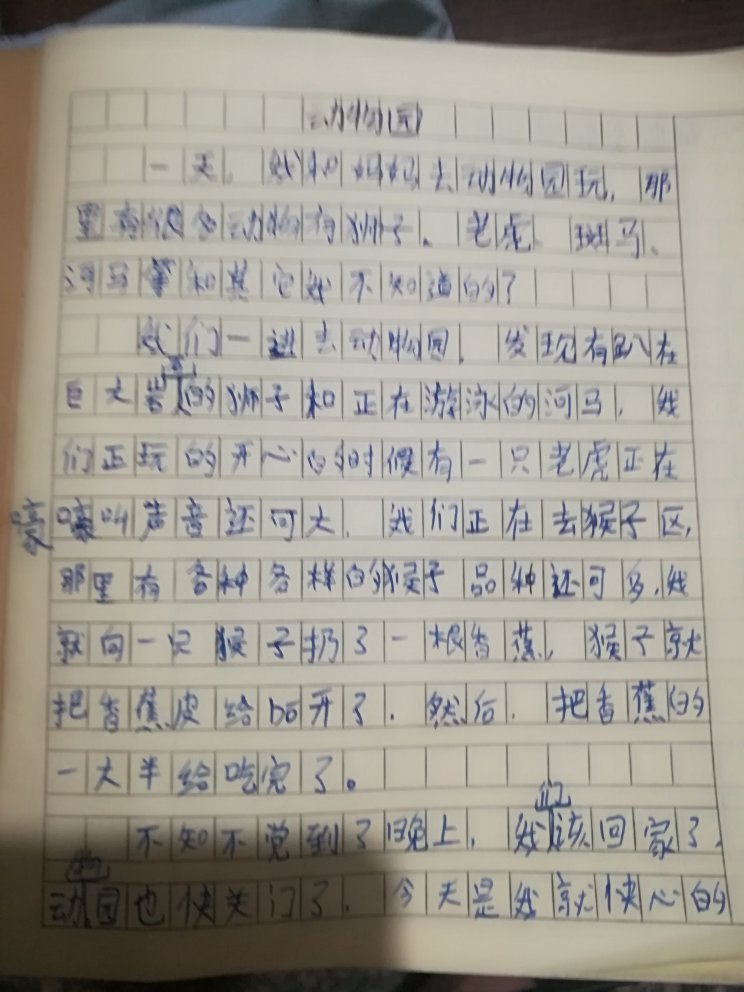 动物园
一天,我和妈妈去动物园玩,那
里有很多动物有狮子、老虎、斑马、
河马等和其它我不知道的了
我们一进去动物园,发现有趴在
巨大岩石的狮子和正在游泳的河马,我
们正玩的开心的时候有一只老虎正在
嚎嚎叫声音还可大,我们正在去猴子区,
那里有各种各样的猴子品种还可多,我
就向一只猴子扔了一根香蕉,猴子就
把香蕉皮给扒开了.然后.把香蕉的
一大半给吃完了。
不知不觉到了晚上,我们该回家了,
动物园也快关门了.今天是我就快心的